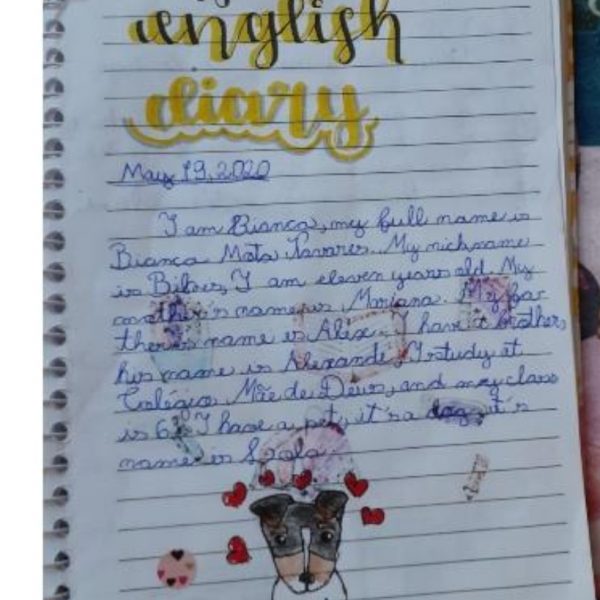 english
diary
May 19, 2020
I am Bianca, my full name is
Bianca Mota Tavares. My nickname
is I am eleven years old. My
mother's name is Mariana. My fa-
ther's name is Alex. I have 1 brother,
his name is Alexande, I study at
Colégio Mãe de Deus, and my class
is 6 I have a pet, it's a dog, it's
name is